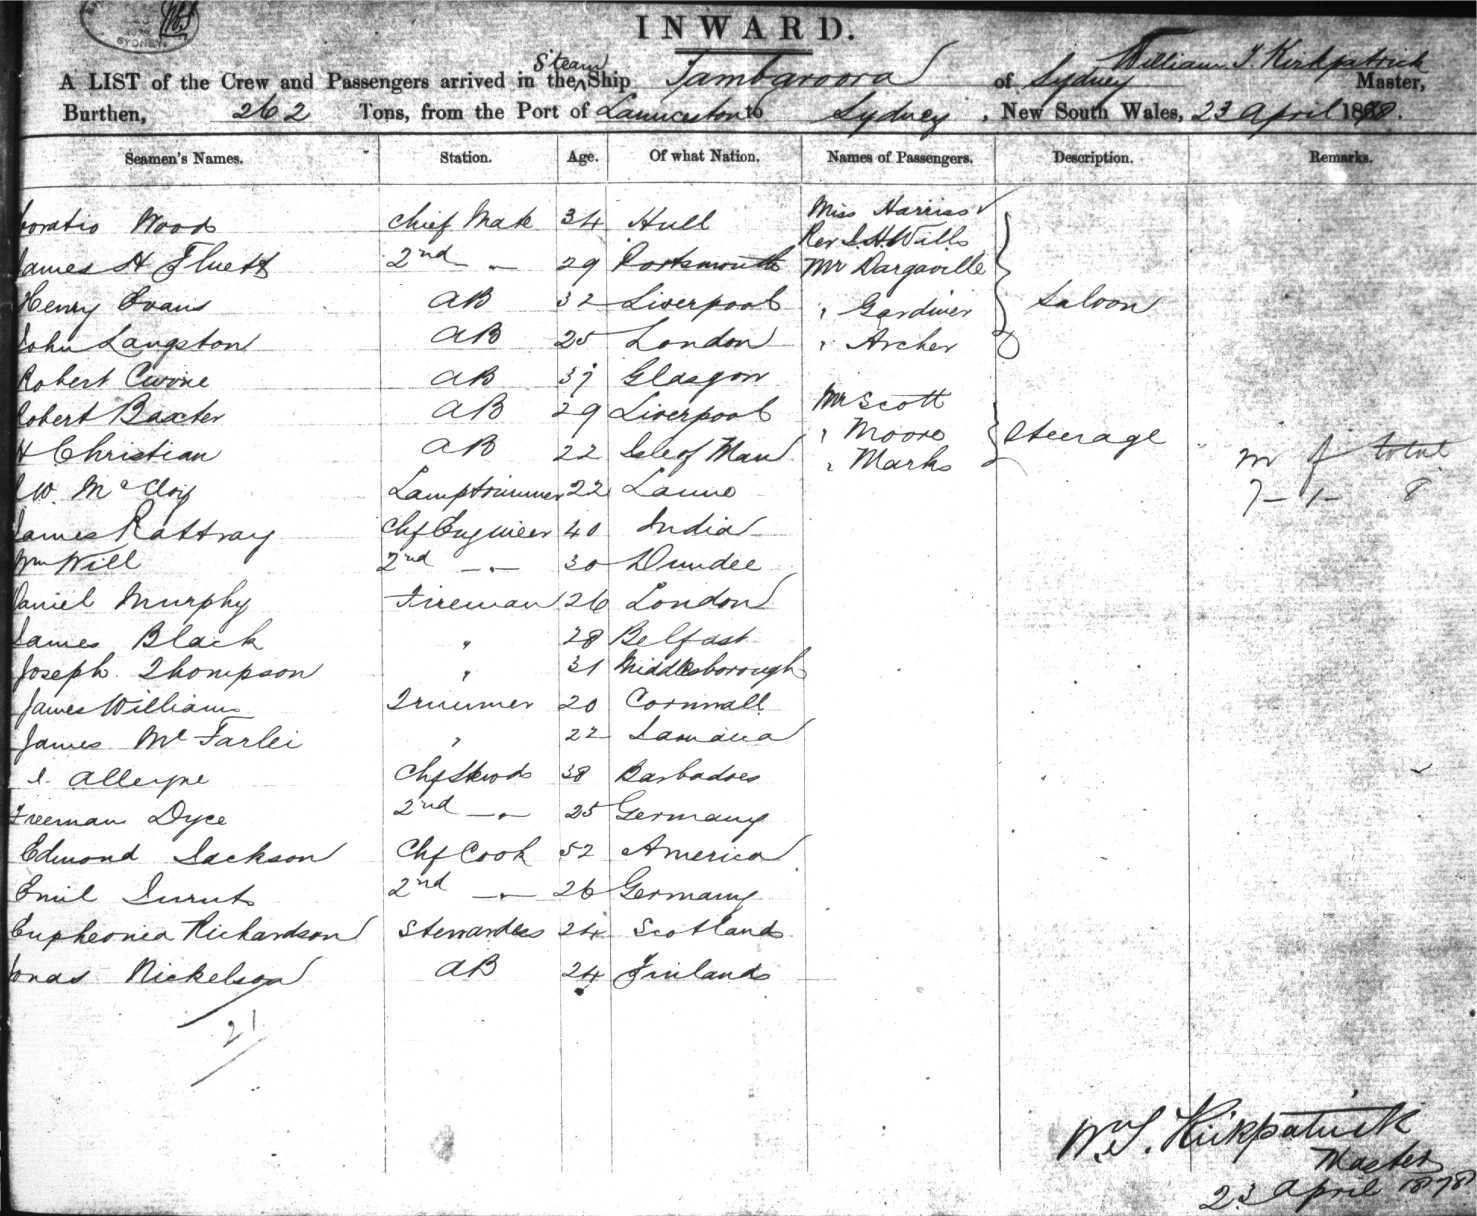 SYDNEY
INWARD.
A LIST of the Crew and Passengers arrived in the Steam Ship Tambaroora of Sydney William T. Kirkpatrick Master,
Burthen, 262 Tons, from the Port of Launceston to Sydney, New South Wales, 23 April 1878.
Seamen's Names. Station. Age. Of what Nation. Names of Passengers. Description. Remarks.
Horatio Wood Chief Mate 34 Hull Miss Harriss
Rev J.H. Wills
James H Fluett 2nd " 29 Portsmouth Mr Dargaville
Henry Evans AB 32 Liverpool " Gardiner Saloon
John Langston AB 25 London " Archer
Robert AB 37 Glasgow
Robert Baxter AB 29 Liverpool Mr Scott
H Christian AB 22 Isle of Man " Moore Steerage
" Marks
m f total
W. McCloy Lamptrimmer 22 Larne 7 - 1 - 8
James Rattray Chf Engineer 40 India
Wm Will 2nd - " - 30 Dundee
Daniel Murphy Fireman 26 London
James Black " 28 Belfast
Joseph Thompson " 31 Middlesborough
James Williams Trimmer 20 Cornwall
James McFarlei " 22 Jamaica
Alleyne Chf Stwd 38 Barbadoes
Freeman Dyce 2nd - " 25 Germany
Edmond Jackson Chf Cook 52 America
Emil 2nd - " - 26 Germany
Eupheonia Richardson Stewardess 24 Scotland
Jonas Nickelson AB 24 Finland
21
Wm T. Kirkpatrick
Master
23 April 1878